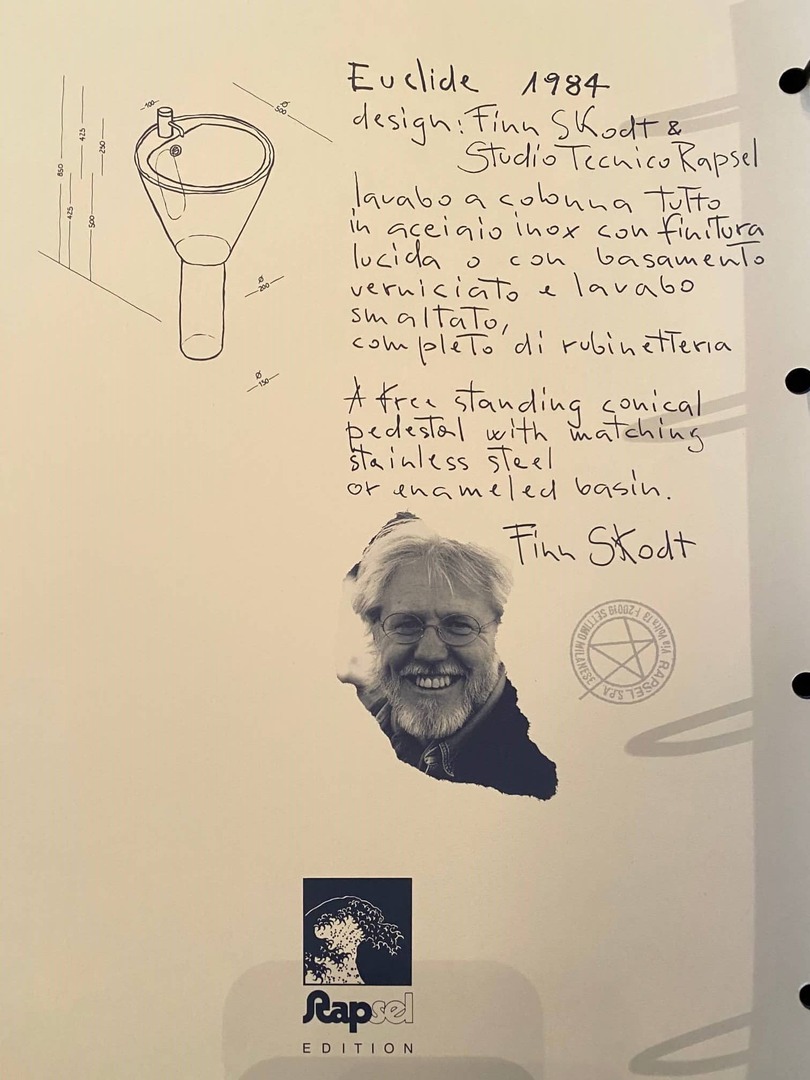 Euclide 1984
design: Finn Skodt &
Studio Tecnico Rapsel
lavabo a colonna tutto
in acciaio inox con finitura
lucida o con basamento
verniciato e lavabo
smaltato,
completo di rubinetteria
A free standing conical
pedestal with matching
stainless steel
or enameled basin.
Finn Skodt
100
Ø 500
850
425
250
425
500
Ø 200
Ø 150
RAPSEL S.P.A.
Via Volta 13 I-20019 SETTIMO MILANESE
Rapsel
EDITION